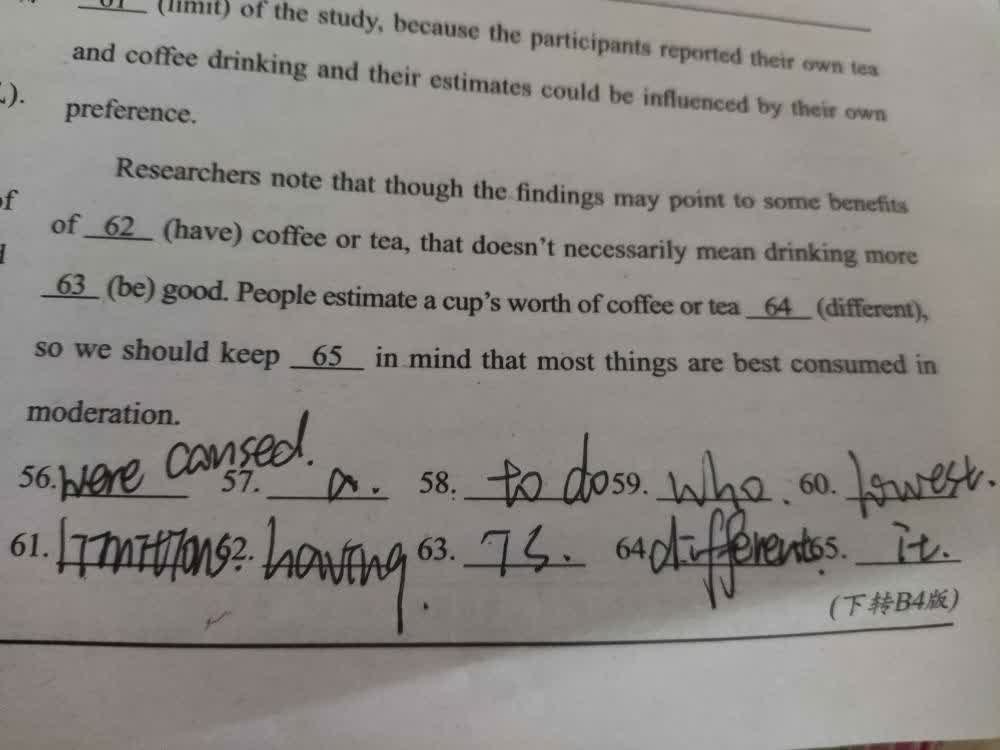 61 (limit) of the study, because the participants reported their own tea
and coffee drinking and their estimates could be influenced by their own
preference.
Researchers note that though the findings may point to some benefits
of 62 (have) coffee or tea, that doesn't necessarily mean drinking more
63 (be) good. People estimate a cup's worth of coffee or tea 64 (different),
so we should keep 65 in mind that most things are best consumed in
moderation.
56. were caused. 57. a. 58. to do 59. who. 60. lowest.
61. 62. having. 63. is. 64 different 65. it.
(下转B4版)